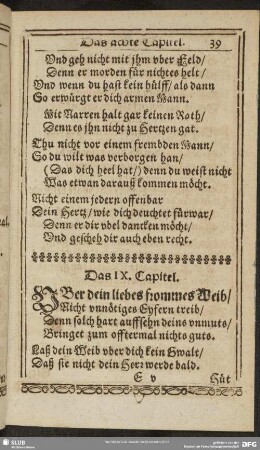 Das achte Capitel. 39
Vnd geh nicht mit jhm vber Feld/
Denn er morden für nichtes helt/
Vnd wenn du hast kein hülff/ als dann
So erwürgt er dich armen Mann.
Mit Narren halt gar keinen Rath/
Denn es jhn nicht zu Hertzen gat.
Thu nicht vor einem frembden Mann/
So du wilt was verborgen han/
(Das dich heel hat/) denn du weist nicht
Was etwan darauß kommen möcht.
Nicht einem jedern offenbar
Dein Hertz/ wie dich deuchtet fürwar/
Denn er dir vbel dancken möcht/
Vnd gescheh dir auch eben recht.
Das IX. Capitel.
VBer dein liebes frommes Weib/
Nicht vnnötiges Eyfern treib/
Denn solch hart auffsehn deins vnmuts/
Bringet zum offtermal nichts guts.
Laß dein Weib vber dich kein Gwalt/
Daß sie nicht dein Herr werde bald.
E v Hüt
SLUB
DFG